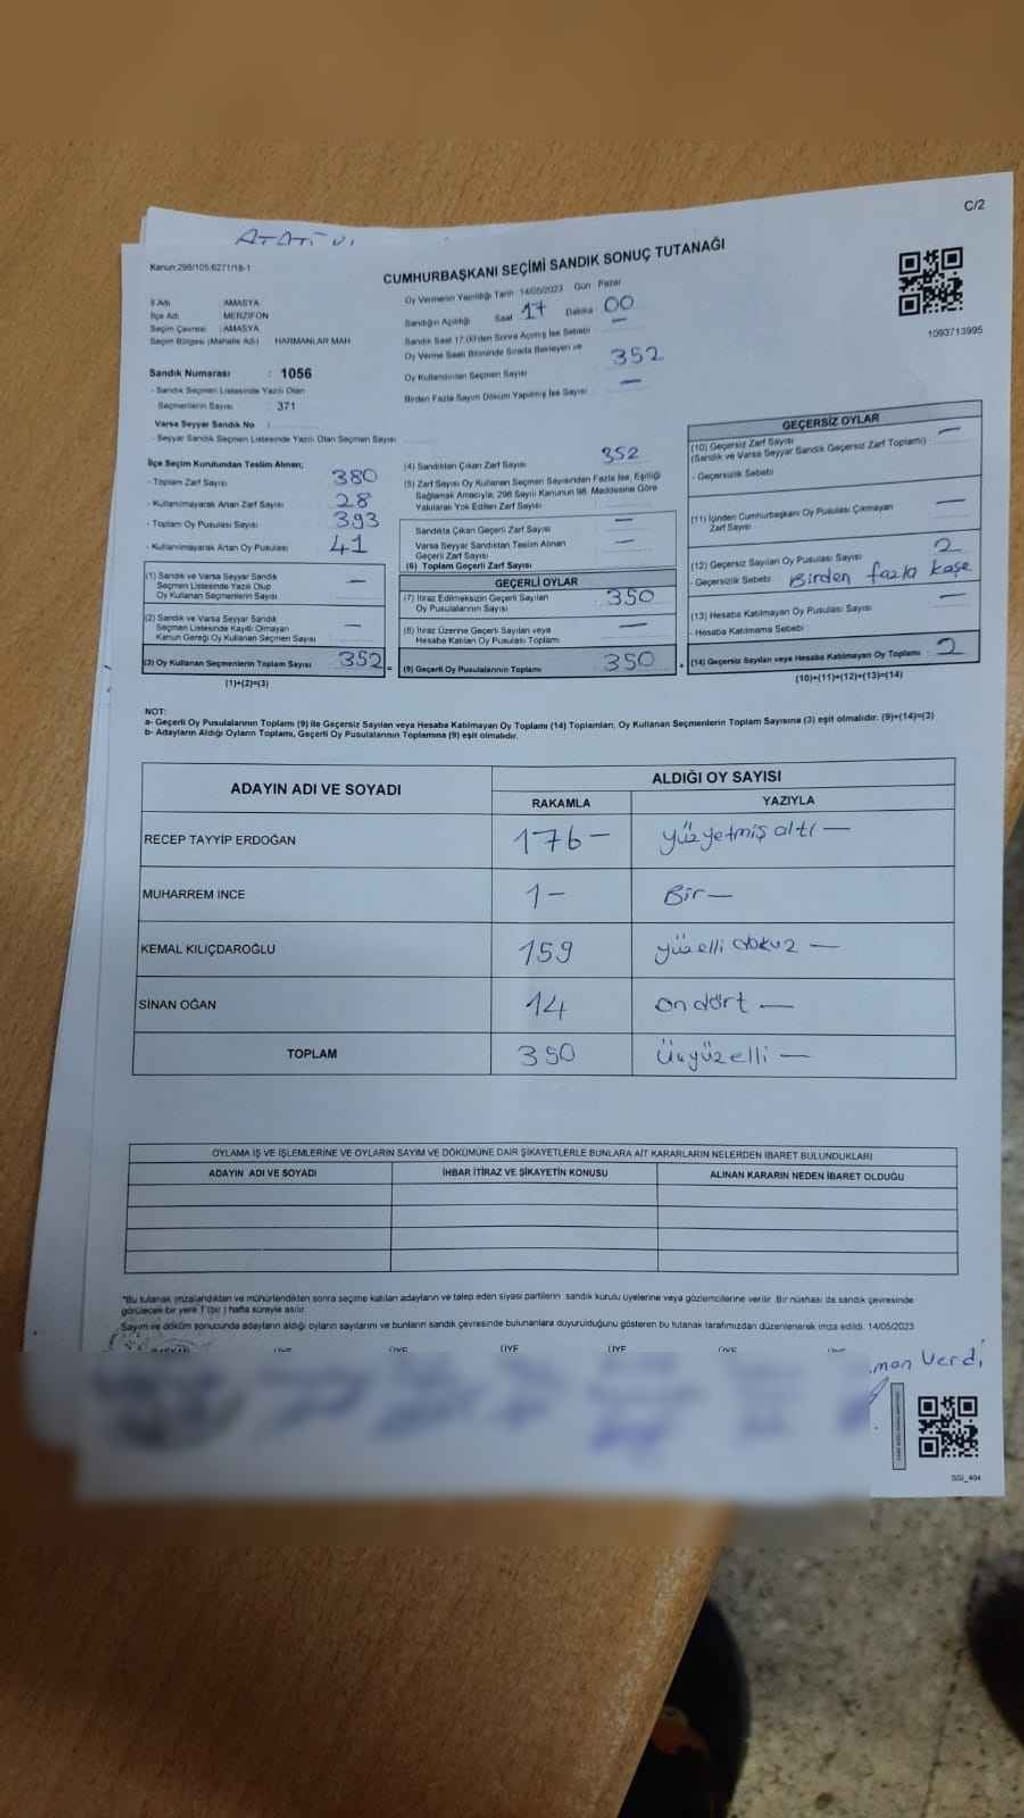 C/2
Kanun:298/105,6271/18-1
CUMHURBAŞKANI SEÇİMİ SANDIK SONUÇ TUTANAĞI
1093713995
İl Adı : AMASYA
İlçe Adı : MERZİFON
Seçim Çevresi : AMASYA
Seçim Bölgesi (Mahalle Adı) HARMANLAR MAH
Sandık Numarası : 1056
- Sandık Seçmen Listesinde Yazılı Olan
Seçmenlerin Sayısı : 371
Varsa Seyyar Sandık No :
- Seyyar Sandık Seçmen Listesinde Yazılı Olan Seçmen Sayısı
Oy Vermenin Yapıldığı Tarih 14/05/2023 Gün Pazar
Sandığın Açıldığı Saat 17 Dakika 00
Sandık Saat 17.00'den Sonra Açılmış İse Sebebi —
Oy Verme Saati Bitiminde Sırada Bekleyen ve
Oy Kullandırılan Seçmen Sayısı 352
Birden Fazla Sayım Döküm Yapılmış İse Sayısı —
İlçe Seçim Kurulundan Teslim Alınan;
- Toplam Zarf Sayısı 380
- Kullanılmayarak Artan Zarf Sayısı 28
- Toplam Oy Pusulası Sayısı 393
- Kullanılmayarak Artan Oy Pusulası 41
(1) Sandık ve Varsa Seyyar Sandık
Seçmen Listesinde Yazılı Olup
Oy Kullanan Seçmenlerin Sayısı —
(2) Sandık ve Varsa Seyyar Sandık
Seçmen Listesinde Kayıtlı Olmayan
Kanun Gereği Oy Kullanan Seçmen Sayısı —
(3) Oy Kullanan Seçmenlerin Toplam Sayısı 352 =
(1)+(2)=(3)
(4) Sandıktan Çıkan Zarf Sayısı 352
(5) Zarf Sayısı Oy Kullanan Seçmen Sayısından Fazla İse, Eşitliği
Sağlamak Amacıyla, 298 Sayılı Kanunun 98. Maddesine Göre
Yakılarak Yok Edilen Zarf Sayısı
Sandıkta Çıkan Geçerli Zarf Sayısı —
Varsa Seyyar Sandıktan Teslim Alınan
Geçerli Zarf Sayısı —
(6) Toplam Geçerli Zarf Sayısı
GEÇERLİ OYLAR
(7) İtiraz Edilmeksizin Geçerli Sayılan
Oy Pusulalarının Sayısı 350
(8) İtiraz Üzerine Geçerli Sayılan veya
Hesaba Katılan Oy Pusulası Toplamı —
(9) Geçerli Oy Pusulalarının Toplamı 350 +
GEÇERSİZ OYLAR
(10) Geçersiz Zarf Sayısı —
(Sandık ve Varsa Seyyar Sandık Geçersiz Zarf Toplamı)
- Geçersizlik Sebebi
(11) İçinden Cumhurbaşkanı Oy Pusulası Çıkmayan
Zarf Sayısı —
(12) Geçersiz Sayılan Oy Pusulası Sayısı 2
- Geçersizlik Sebebi Birden fazla kaşe
(13) Hesaba Katılmayan Oy Pusulası Sayısı —
- Hesaba Katılmama Sebebi :
(14) Geçersiz Sayılan veya Hesaba Katılmayan Oy Toplamı 2
(10)+(11)+(12)+(13)=(14)
NOT:
a- Geçerli Oy Pusulalarının Toplamı (9) ile Geçersiz Sayılan veya Hesaba Katılmayan Oy Toplamı (14) Toplamları, Oy Kullanan Seçmenlerin Toplam Sayısına (3) eşit olmalıdır. (9)+(14)=(3)
b- Adayların Aldığı Oyların Toplamı, Geçerli Oy Pusulalarının Toplamına (9) eşit olmalıdır.
ADAYIN ADI VE SOYADI ALDIĞI OY SAYISI
RAKAMLA YAZIYLA
RECEP TAYYİP ERDOĞAN 176 — yüzyetmiş altı —
MUHARREM İNCE 1 — Bir —
KEMAL KILIÇDAROĞLU 159 yüzelli dokuz —
SİNAN OĞAN 14 on dört —
TOPLAM 350 Üçyüzelli —
OYLAMA İŞ VE İŞLEMLERİNE VE OYLARIN SAYIM VE DÖKÜMÜNE DAİR ŞİKAYETLERLE BUNLARA AİT KARARLARIN NELERDEN İBARET BULUNDUKLARI
ADAYIN ADI VE SOYADI İHBAR İTİRAZ VE ŞİKAYETİN KONUSU ALINAN KARARIN NEDEN İBARET OLDUĞU
"Bu tutanak imzalandıktan ve mühürlendikten sonra seçime katılan adayların ve talep eden siyasi partilerin sandık kurulu üyelerine veya gözlemcilerine verilir. Bir nüshası da sandık çevresinde
görülecek bir yere 1 (bir) hafta süreyle asılır.
Sayım ve döküm sonucunda adayların aldığı oyların sayılarını ve bunların sandık çevresinde bulunanlara duyurulduğunu gösteren bu tutanak tarafımızdan düzenlenerek imza edildi. 14/05/2023
BAŞKAN ÜYE ÜYE ÜYE ÜYE ÜYE
Verdi